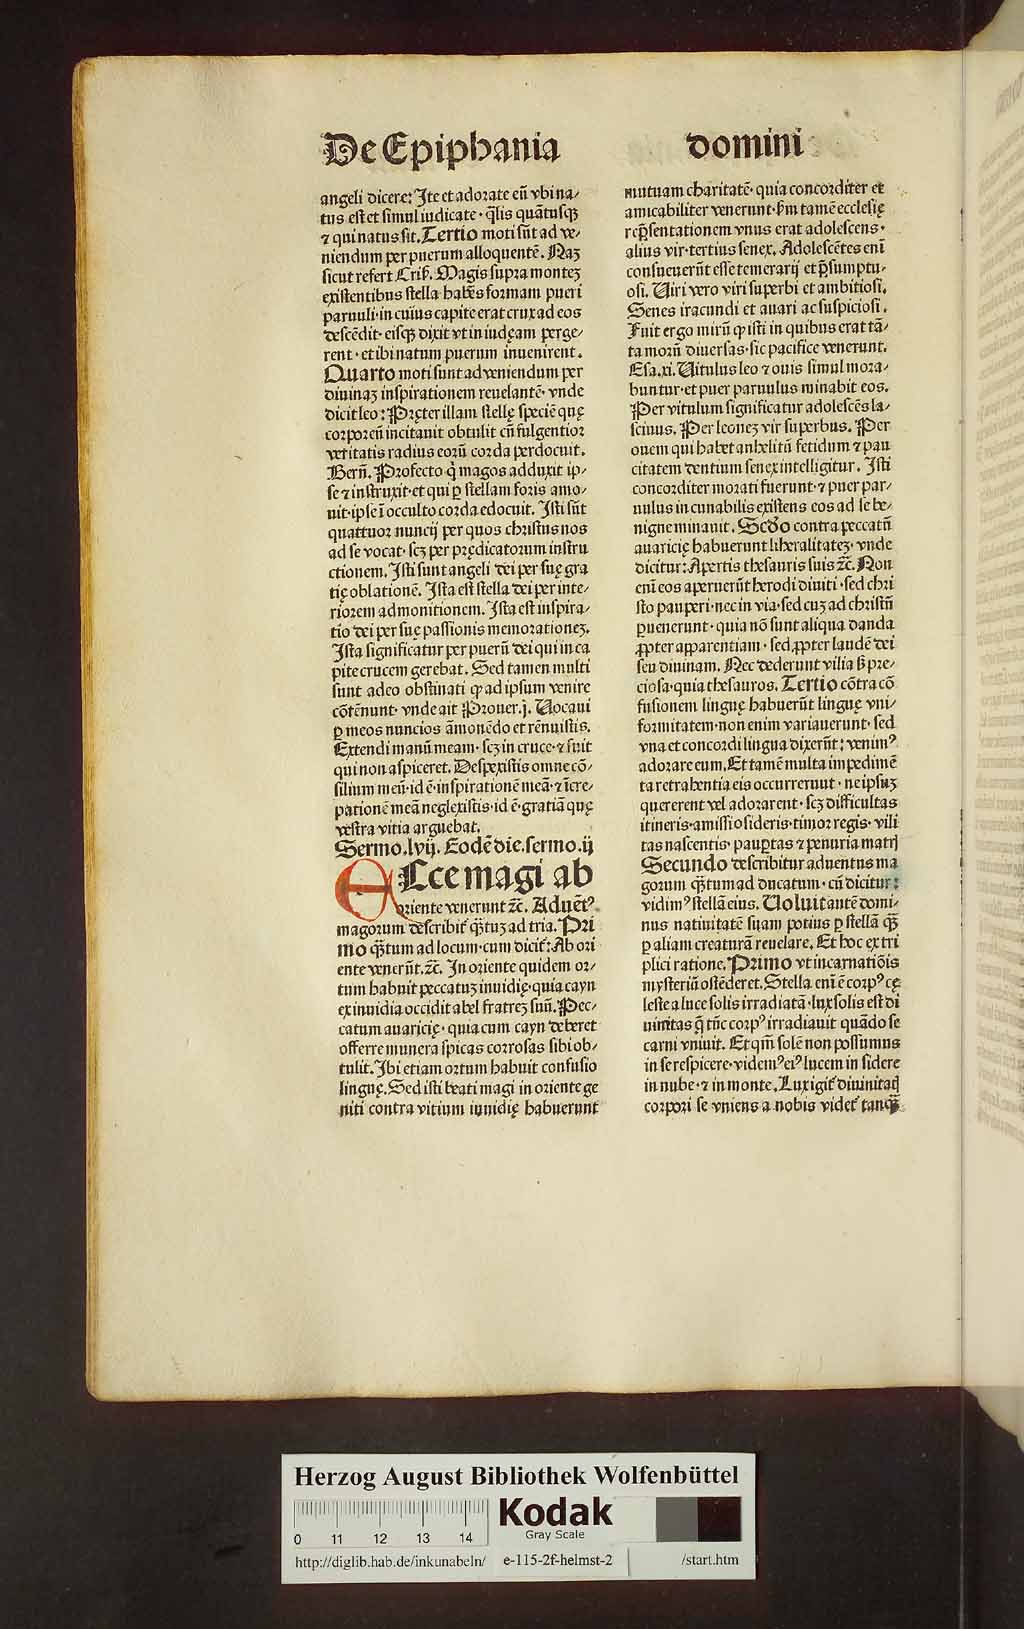 De Epiphania
domini
angeli dicere: Ite et adorate eũ vbi na⸗
tus est et simul iudicate· q̃lis quãtusqꝫ
⁊ qui natus sit. Tertio moti sũt ad ve⸗
niendum per puerum alloquentẽ. Naꝫ
sicut refert Criſ. Magis supra monteꝫ
existentibus stella habẽs formam pueri
paruuli· in cuius capite erat crux ad eos
descẽdit· eisqꝫ dixit vt in iudęam perge⸗
rent· et ibi natum puerum inuenirent.
Quarto moti sunt ad veniendum per
diuinaꝫ inspirationem reuelantẽ· vnde
dicit leo: Pręter illam stellę speciẽ quę
corporeũ incitauit obtulit cũ fulgentior
veritatis radius eorũ corda perdocuit.
Berñ. Profecto q̇ magos adduxit ip⸗
se ⁊ instruxit· et qui ꝑ stellam foris amo⸗
uit· ipse ĩ occulto corda edocuit. Isti sũt
quattuor nuncij per quos christus nos
ad se vocat· scꝫ per prędicatorum instru
ctionem. Isti sunt angeli dei per suę gra
tię oblationẽ. Ista est stella dei per inte⸗
riorem admonitionem. Ista est inspira⸗
tio dei per suę passionis memorationeꝫ.
Ista significatur per puerũ dei qui in ca
pite crucem gerebat. Sed tamen multi
sunt adeo obstinati ꝙ ad ipsum venire
cõtẽnunt· vnde ait Prouer.j. Vocaui
ꝑ meos nuncios ãmonẽdo et rẽnuistis.
Extendi manũ meam· scꝫ in cruce· ⁊ fuit
qui non aspiceret. Despexistis omne cõ⸗
silium meũ· id ẽ· inspirationẽ meã· ⁊ ĩcre⸗
pationẽ meã neglexistis· id ẽ· gratiã quę
vestra vitia arguebat.
Sermo.lvij. Eodẽ die. sermo.ij
ECce magi ab
oriente venerunt ⁊c̃. Aduẽtꝰ
magorum describit̃ q̃ꝫtuꝫ ad tria. Pri
mo q̃ꝫtum ad locum· cum dicit̃: Ab ori
ente venerũt. ⁊c̃. In oriente quidem or⸗
tum habuit peccatuꝫ inuidię· quia cayn
ex inuidia occidit abel fratreꝫ suũ. Pec⸗
catum auaricię· quia cum cayn deberet
offerre munera spicas corrosas sibi ob⸗
tulit. Ibi etiam ortum habuit confusio
linguę. Sed isti beati magi in oriente ge
niti contra vitium inuidię habuerunt
mutuam charitatẽ· quia concorditer et
amicabiliter venerunt· ẜm tamẽ ecclesię
rep̃sentationem vnus erat adolescens·
alius vir· tertius senex. Adolescẽtes eni
consueuerũt esse temerarij et p̃sumptu⸗
osi. Viri vero viri superbi et ambitiosi.
Senes iracundi et auari ac suspiciosi.
Fuit ergo mirũ ꝙ isti in quibus erat tã⸗
ta morũ diuersas· sic pacifice venerunt.
Esa.xi. Vitulus leo ⁊ ouis simul mora⸗
buntur· et puer paruulus minabit eos.
Per vitulum significatur adolescẽs la⸗
sciuus. Per leoneꝫ vir superbus. Per
ouem qui habet anhelitũ fetidum ⁊ pau
citatem dentium senex intelligitur. Isti
concorditer morati fuerunt· ⁊ puer par⸗
uulus in cunabilis existens eos ad se be⸗
nigne minauit. Scd̃o contra peccatũ
auaricię habuerunt liberalitateꝫ· vnde
dicitur: Apertis thesauris suis ⁊c̃. Non
enĩ eos aperuerũt herodi diuiti· sed chri
sto pauperi· nec in via· sed cuꝫ ad christũ
ꝑuenerunt· quia nõ sunt aliqua danda
ꝓpter apparentiam· sed ꝓpter laudẽ dei
seu diuinam. Nec dederunt vilia ß pre⸗
ciosa· quia thesauros. Tertio cõtra cõ
fusionem linguę habuerũt linguę vni⸗
formitatem· non enim variauerunt· sed
vna et concordi lingua dixerũt: venimꝰ
adorare eum. Et tamẽ multa impedimẽ
ta retrahentia eis occurrerunt· ne ipsuꝫ
quererent vel adorarent· scꝫ difficultas
itineris· amissio sideris· timor regis· vili
tas nascentis· pauꝑtas ⁊ penuria matrꝭ
Secundo describitur aduentus ma
gorum q̃ꝫtum ad ducatum· cũ dicitur:
vidimꝰ stellã eius. Voluit antẽ domi⸗
nus natiuitatẽ suam potius ꝑ stellã q̃ꝫ
ꝑ aliam creaturã reuelare. Et hoc ex tri
plici ratione. Primo vt incarnatiõis
mysteriũ ostẽderet. Stella enĩ ẽ corpꝰ cę
leste a luce solis irradiatã· lux solis est di
uinitas q̃ tũc corpꝰ irradiauit quãdo se
carni vniuit. Et qm̃ solẽ non possumus
in se respicere· videmꝰ eiꝰ lucem in sidere
in nube· ⁊ in monte. Lux igit̃ diuinitatꝭ
corpori se vniens a nobis videt̃ tanq̃ꝫ
Herzog August Bibliothek Wolfenbüttel
Kodak
Gray Scale
0 11 12 13 14
http://diglib.hab.de/inkunabeln/ e-115-2f-helmst-2 /start.htm